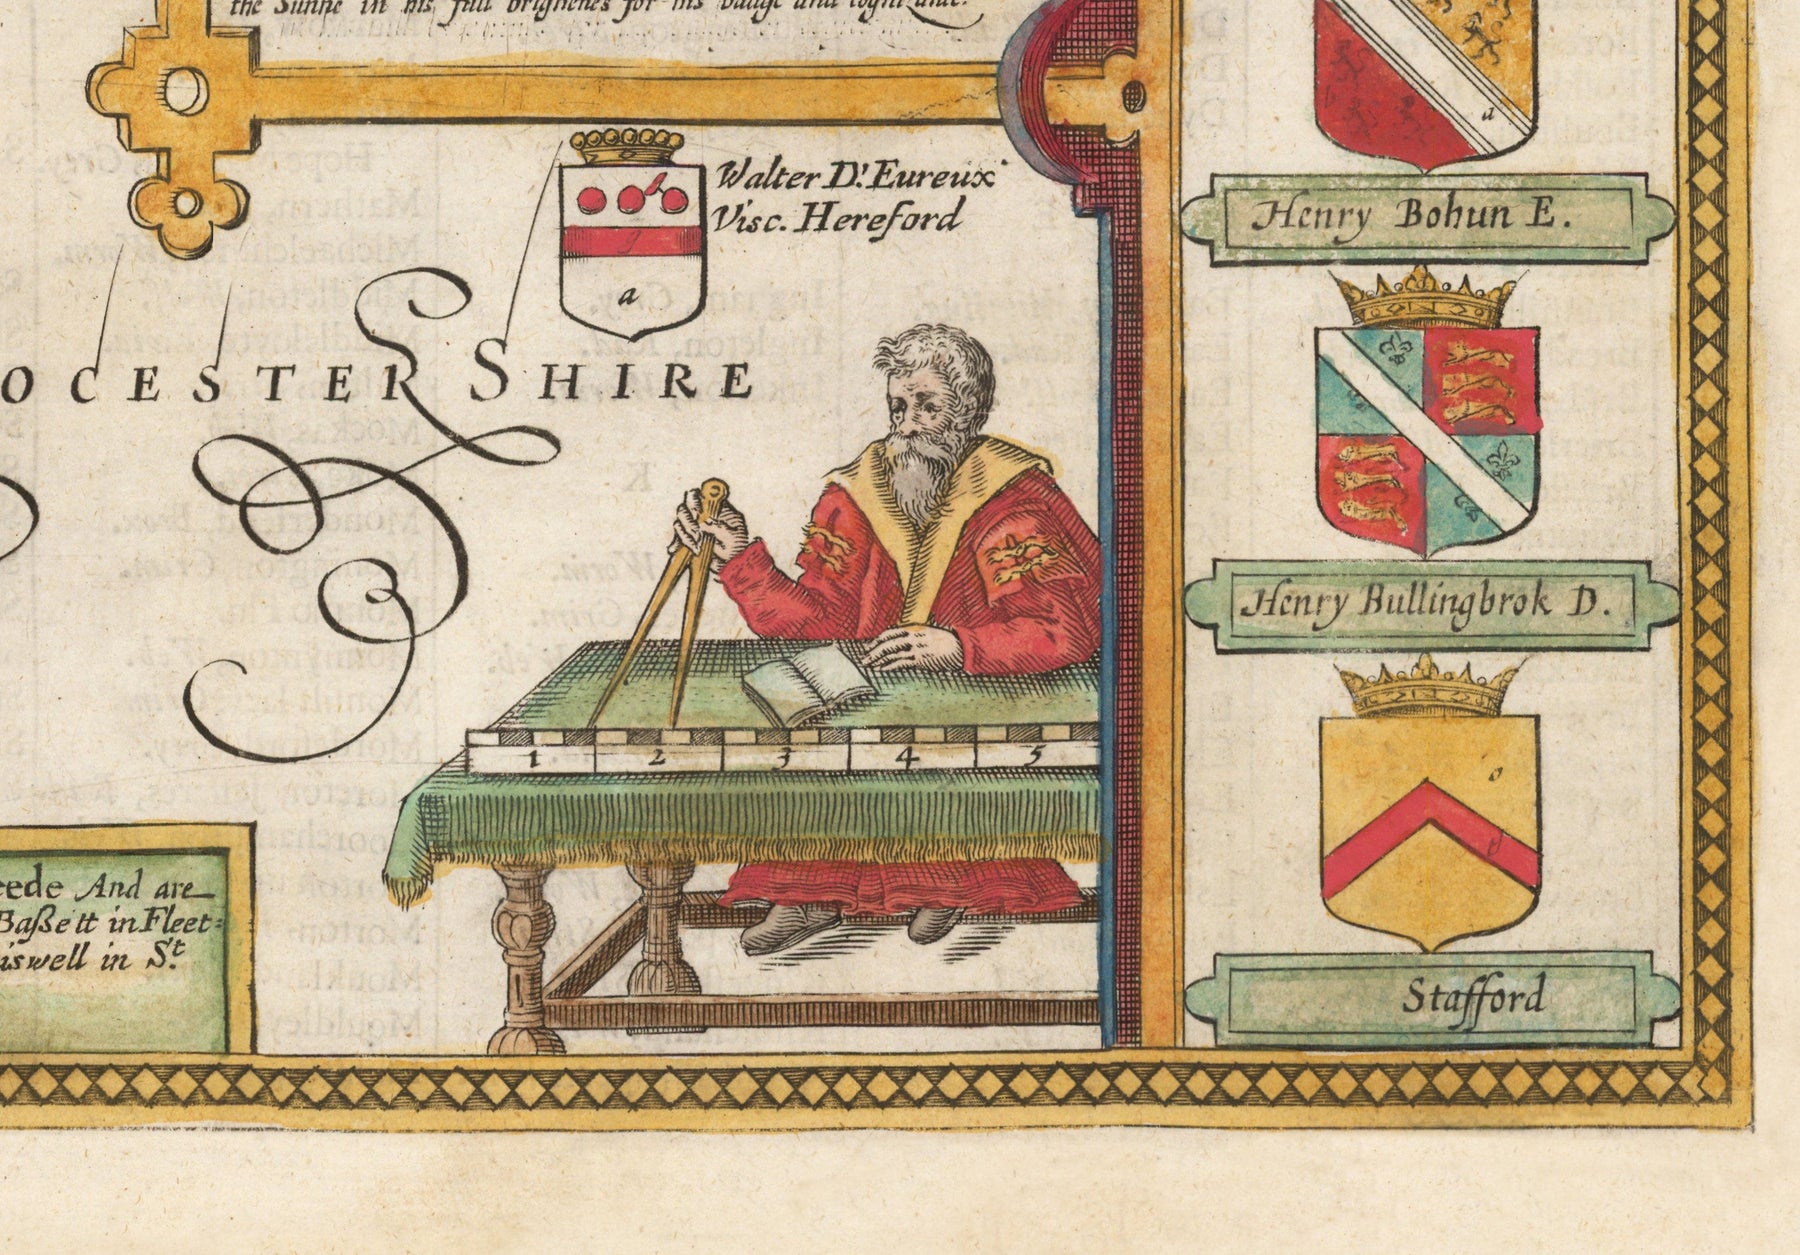 the Sunne in his full brightnes for his badge and cognizance.
Walter D'. Eureux
Visc. Hereford
OCESTER SHIRE
1 2 3 4 5
a
eede And are
Baßett in Fleet=
iswell in St.
d
Henry Bohun E.
Henry Bullingbrok D.
o
g
Stafford